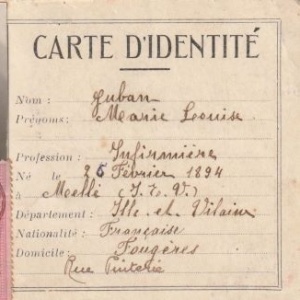 CARTE D'IDENTITÉ
Nom : Juban
Prénoms: Marie Louise
Profession : Infirmière
Né le 25 Février 1894
à Mellé (I. et. V.)
Département : Ille et Vilaine
Nationalité : Française
Domicile: Fougères
Rue